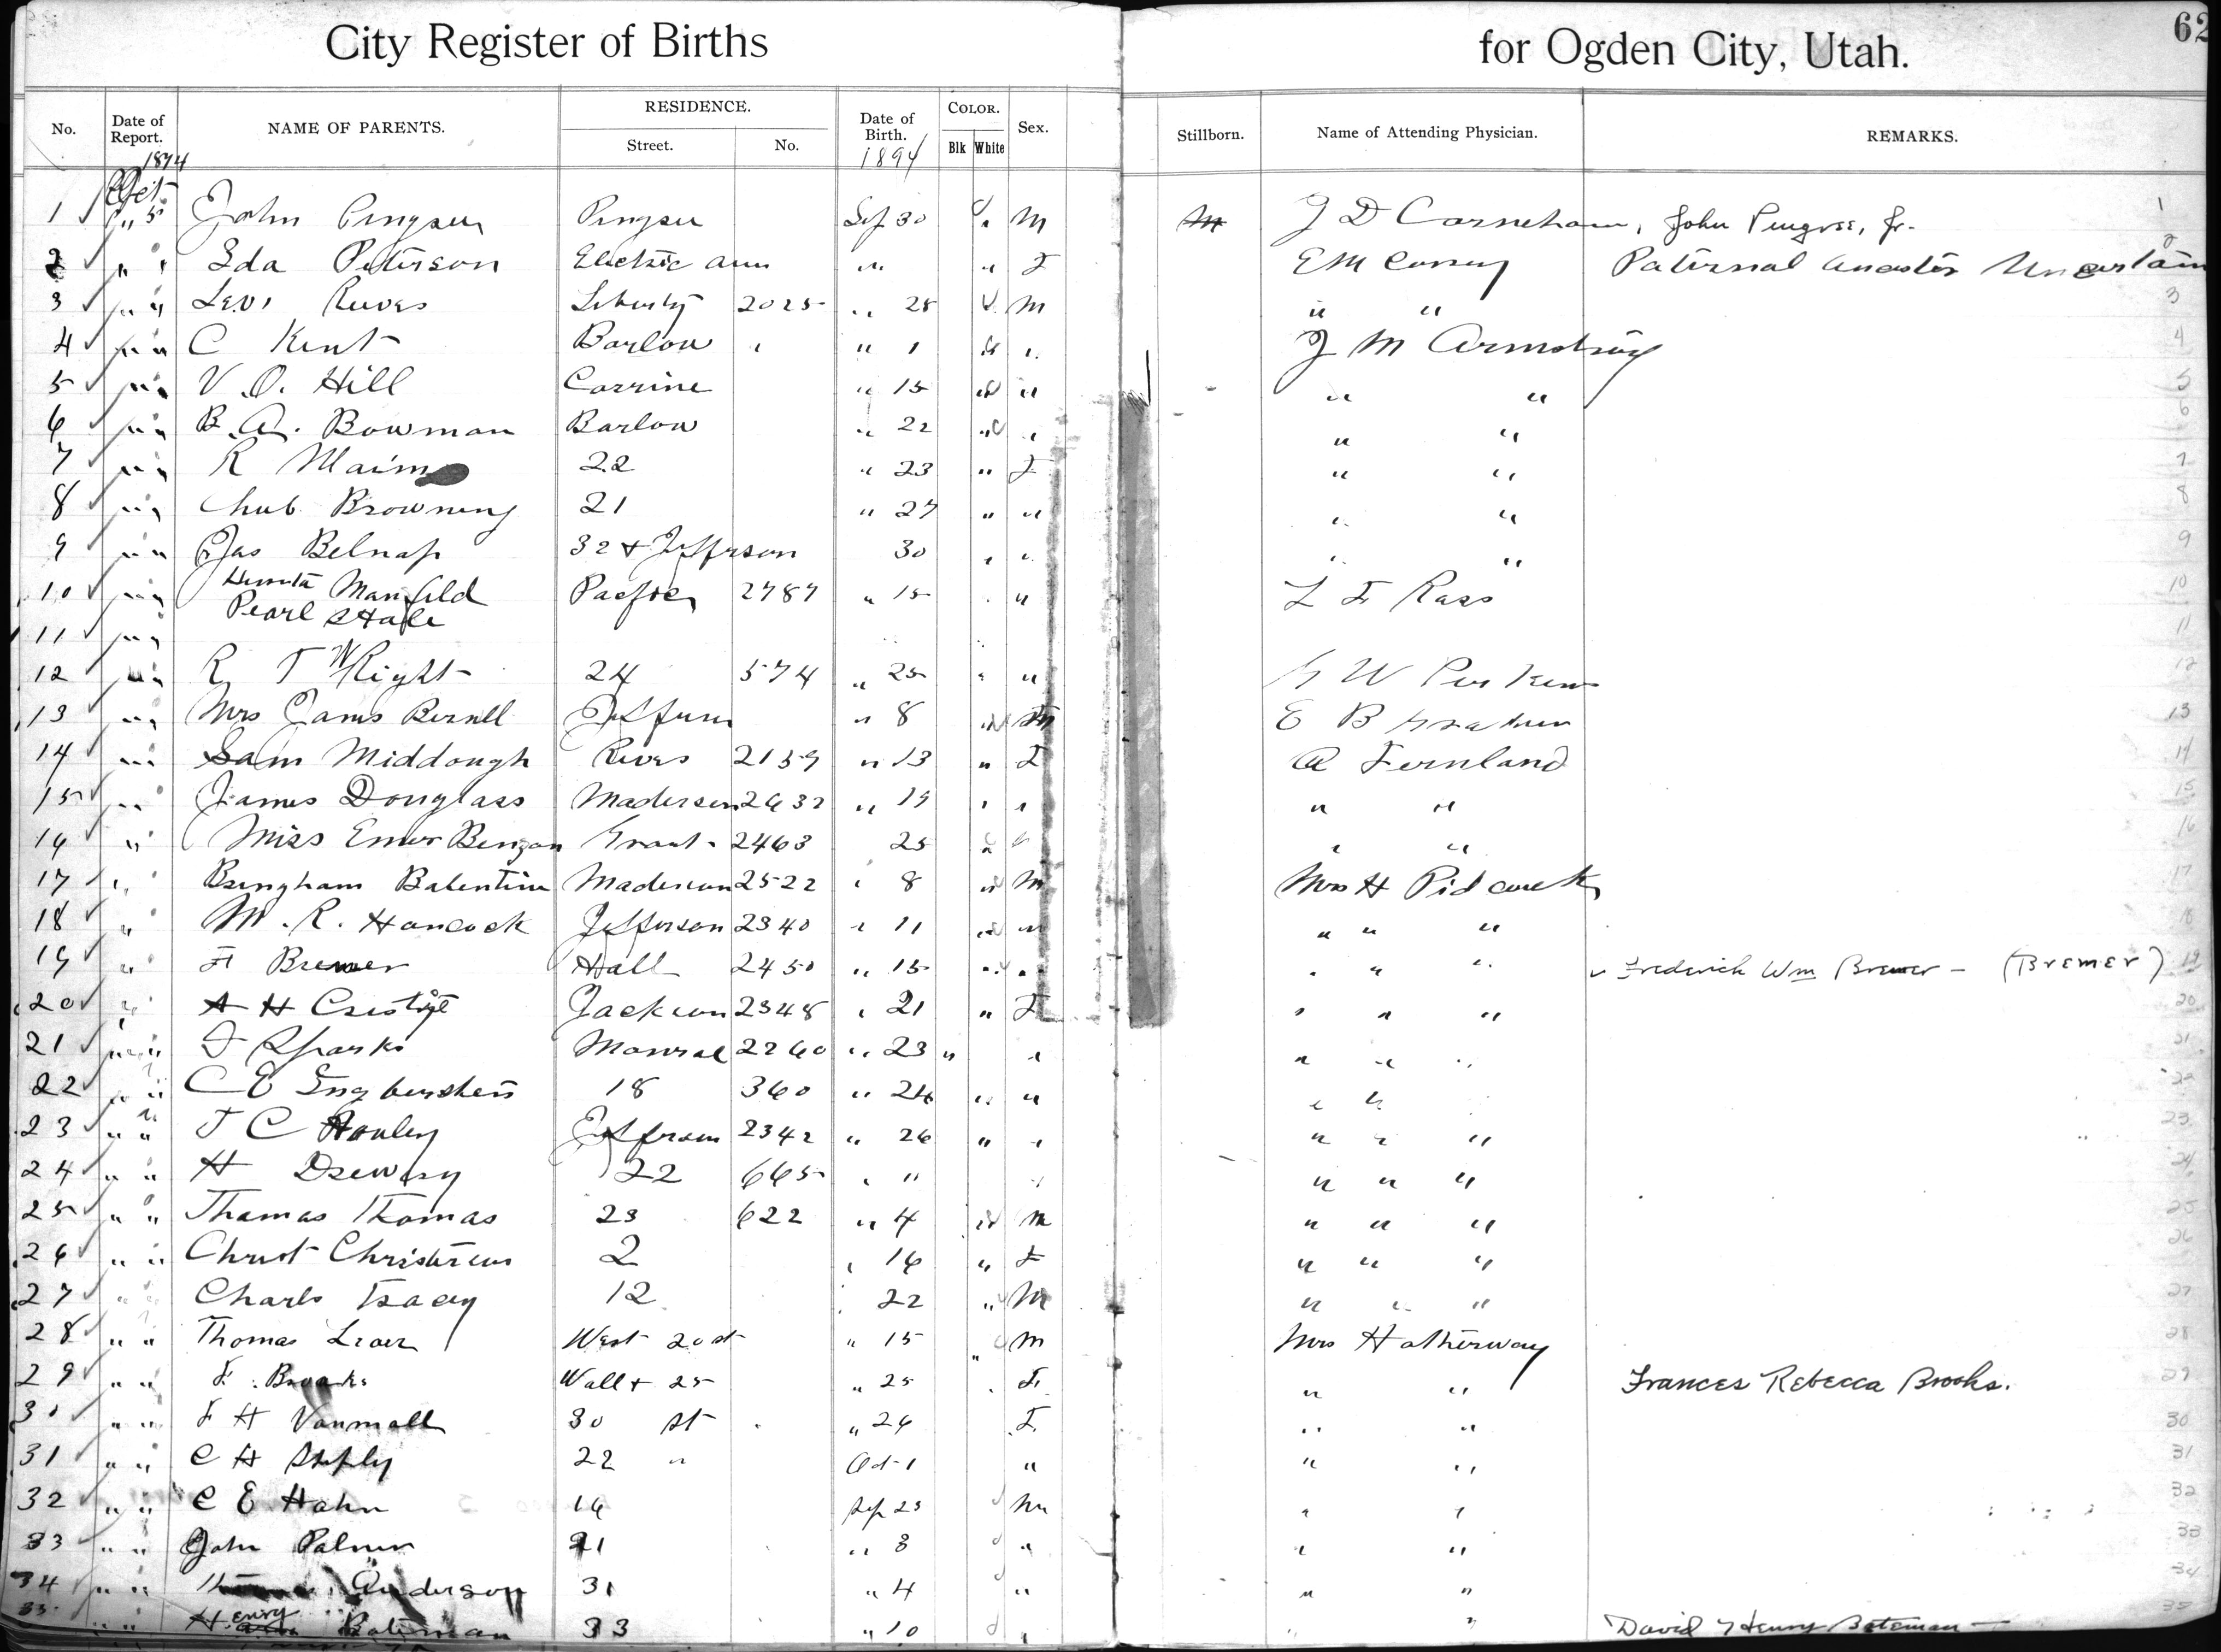 City Register of Births for Ogden City, Utah. 62
No. Date of Report. NAME OF PARENTS. RESIDENCE. Street. No. Date of Birth. COLOR. Blk White Sex. Stillborn. Name of Attending Physician. REMARKS.
1894 1894
Oct
1 " 5 John Pingree Pingree Sep 30 " M J D Carnahan, John Pingree, Jr. 1
2 " " Ida Peterson Electric " " F E M Conroy Paternal Ancestor Uncertain 2
3 " " Levi Reeves Liberty 2025 " 28 M " " 3
4 " " C Kent Barlow " 1 " J M Armstrong 4
5 " " V. O. Hill Corrine " 15 " " " 5
6 " " B. A. Bowman Barlow " 22 " " " 6
7 " " R 22 " 23 " F " " 7
8 " " Chub Browning 21 " 27 " " " " 8
9 " " Jas Belnap 32 + Jefferson 30 " " " " 9
10 " " Manfild Pacific 2787 " 15 " " L F Rass 10
Pearl Stale
11 " " 11
12 " " R T WRight 24 574 " 25 " " G W Perkins 12
13 " " Mrs James Burnell Jefferson " 8 M E B Graham 13
14 " " Sam Middough Reves 2159 " 13 " F A Fernland 14
15 " " James Douglass Maderson 2632 " 19 " " " " 15
16 " Miss Emer Benzon Grant 2463 25 " " " " 16
17 " " Bringham Balentine Maderson 2522 " 8 M Mrs H Pidcock 17
18 " M. R. Hancock Jefferson 2340 " 11 " " " " 18
19 " F Bremer Hall 2450 " 15 " " " " " Frederick Wm Bremer - (Bremer) 19
20 " A H Jackson 2348 " 21 " F " " " 20
21 " " J Sparks Monroe 2260 " 23 " " " " " 21
22 " " C E 18 360 " 24 " " " " 22
23 " " T C Hanley Jefferson 2342 " 26 " " " " " 23
24 " " H Drewry 22 665 " " " " " " 24
25 " " Thomas Thomas 23 622 " 4 M " " " 25
26 " " Christ Christensen 2 " 16 " F " " " 26
27 " " Charls Tracey 12 22 " M " " " 27
28 " " Thomas West 20 st " 15 " M Mrs Hatherway 28
29 " " F. Brooks Wall + 25 " 25 " F " " Frances Rebecca Brooks. 29
30 " " F H Vanmall 30 st " 26 F " " 30
31 " " C H 22 " Oct 1 " " " 31
32 " " C E Hahn 16 Sep 25 M " " 32
33 " " John Palmer 21 " 3 " " " 33
34 " " Anderson 31 " 4 " " " 34
35 " " Henry Bateman 33 " 10 " " " David Henry Bateman - 35